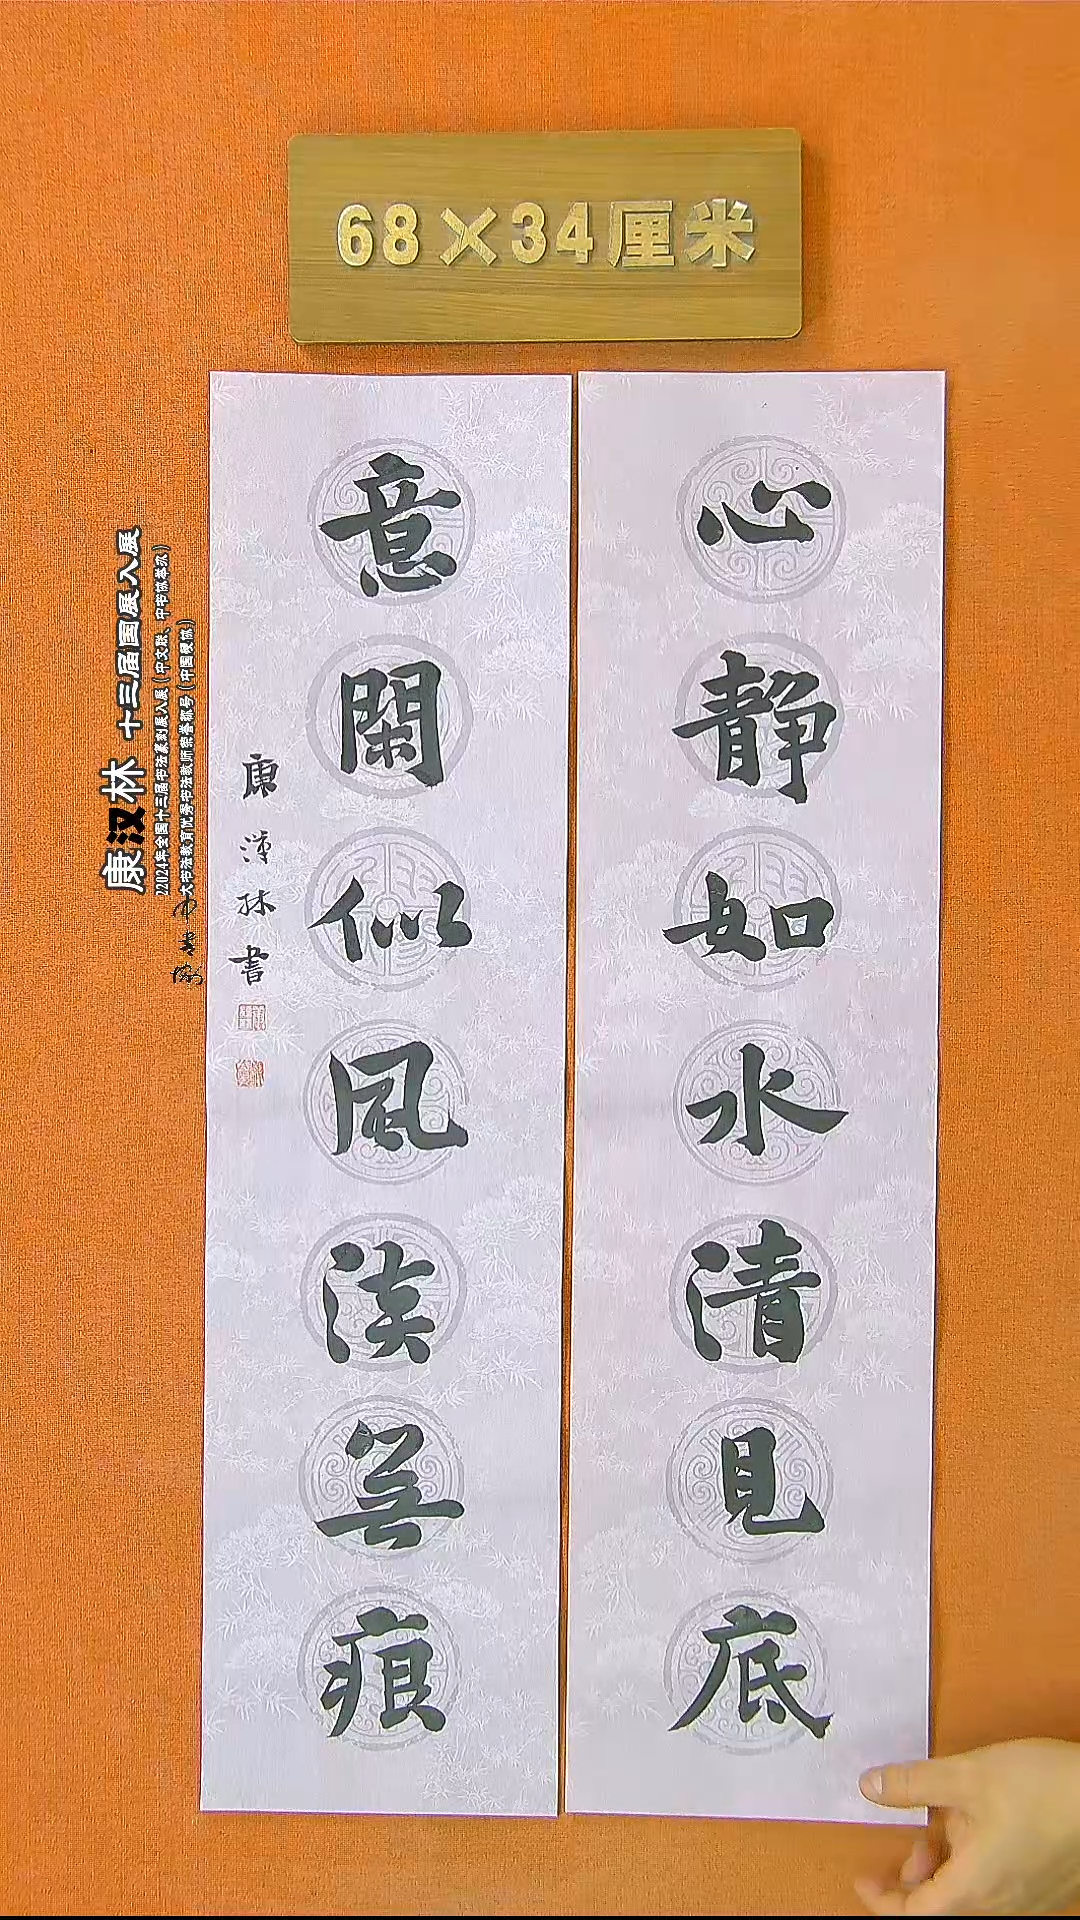 68×34厘米
心静如水清见底
意閑似風淡無痕
康漢林書
康汉林 十三届国展入展
22024年全国十三届书法篆刻展入展（中文联、中书协举办）
大书法教育优秀书法教师荣誉称号（中国硬协）